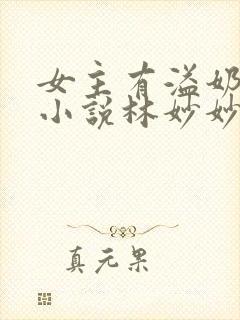 女主有溢奶
小说林妙妙
真元果